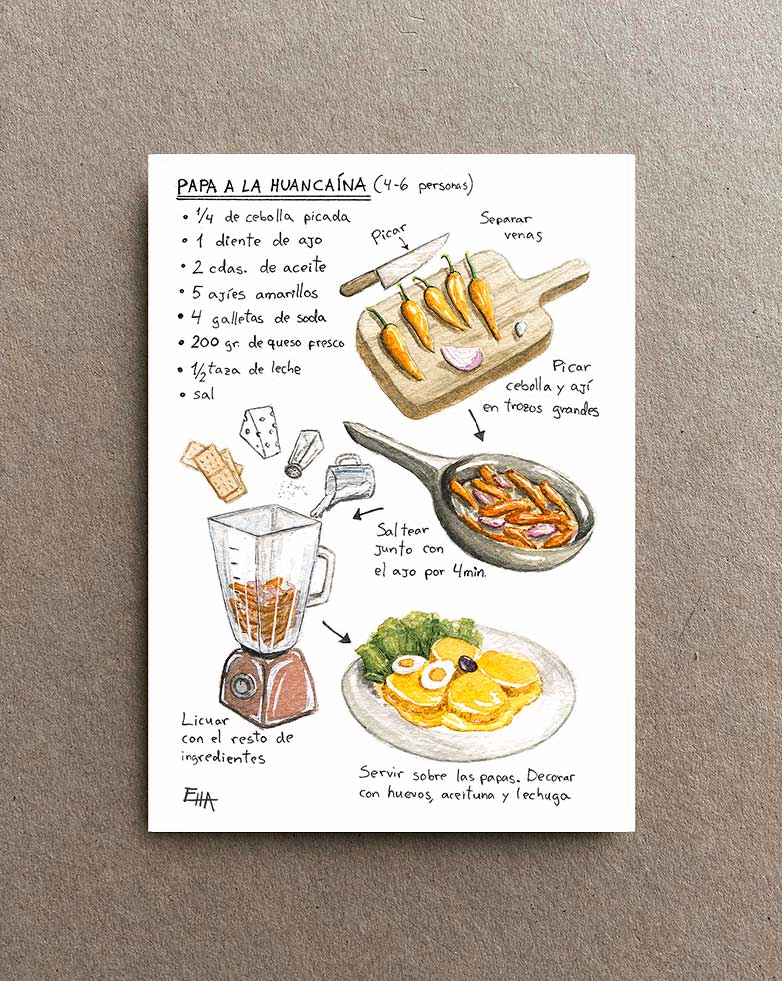 PAPA A LA HUANCAÍNA (4-6 personas)
• 1/4 de cebolla picada
• 1 diente de ajo
• 2 cdas. de aceite
• 5 ajíes amarillos
• 4 galletas de soda
• 200 gr. de queso fresco
• 1/2 taza de leche
• sal
Picar
Separar
venas
Picar
cebolla y ají
en trozos grandes
Saltear
junto con
el ajo por 4min.
Licuar
con el resto de
ingredientes
Servir sobre las papas. Decorar
con huevos, aceituna y lechuga
EHA